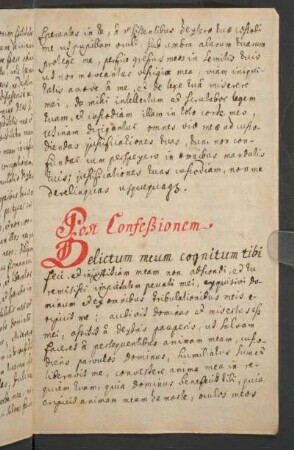 sperantes in te, à resistentibus dexteræ tuæ custodi
me ut pupillam oculi. sub umbra alarum tuarum
protege me, perfice gressus meos in semitis tuis
ut non moveantur vestigia mea, viam iniqui-
tatis amove à me, et de lege tua miserere
mei, da mihi intellectum et scrutabor legem
tuam, et custodiam illam in toto corde meo,
utinam dirigantur omnes viæ meæ ad custo-
diendas justificationes tuas, tunc non con-
fundar cum perspexero in omnibus mandatis
tuis; justificationes tuas custodiam, non me
derelinquas usquequaqz.
Post Confeßionem
Delictum meum cognitum tibi
feci, et injustitiam meam non abscondi, et tu
remisisti impietatem peccati mei, exquisivi do-
minum et ex omnibus tribulationibus meis e-
ripuit me; audivit dominus et misertus est
mei, astitit à dextris pauperis, ut salvam
faceret à persequentibus animam meam, custo-
diens parvulos dominus, humiliatus sum et
liberavit me, convertere anima mea in re-
quiem tuam, quia dominus benefecit tibi, quia
eripuit animam meam de morte, oculos meos